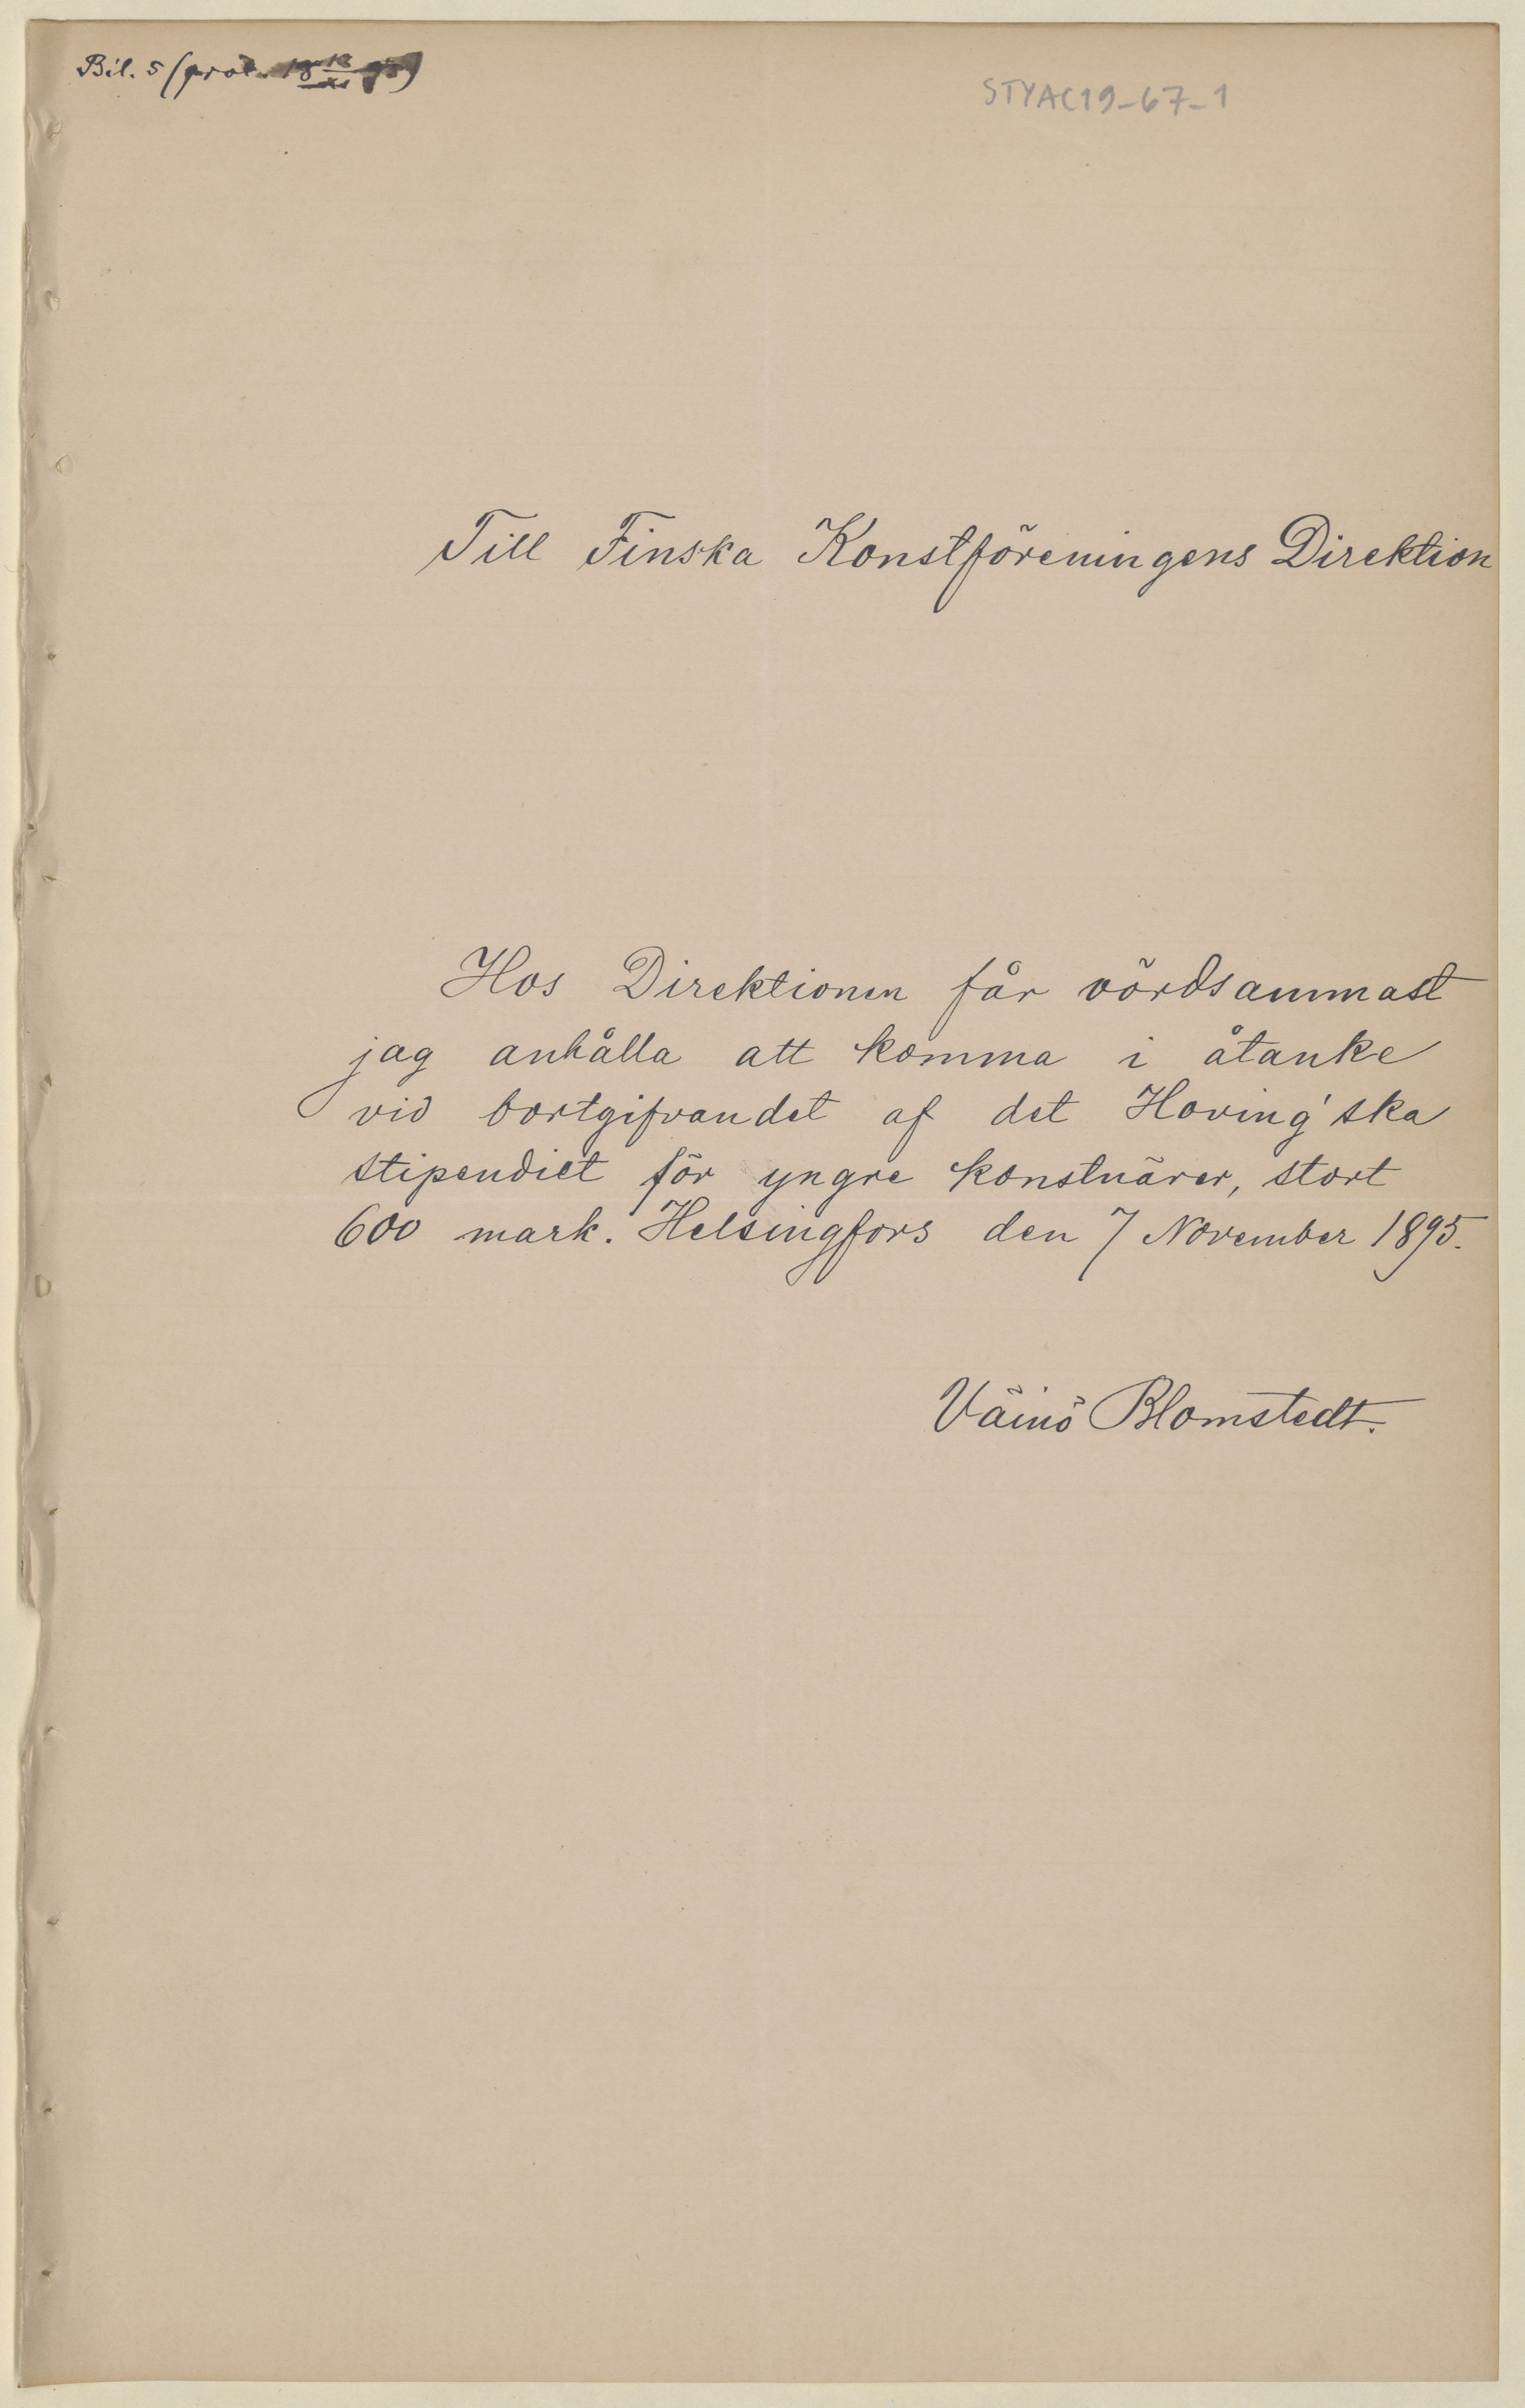 Bil. 5 (prot.
STYAC19-67-1
Till Finska Konstföreningens Direktion
Hos Direktionen får vördsammast
jag anhålla att komma i åtanke
vid bortgifvandet af det Hoving'ska
stipendiet för yngre konstnärer, stort
600 mark. Helsingfors den 7 November 1895.
Väinö Blomstedt.